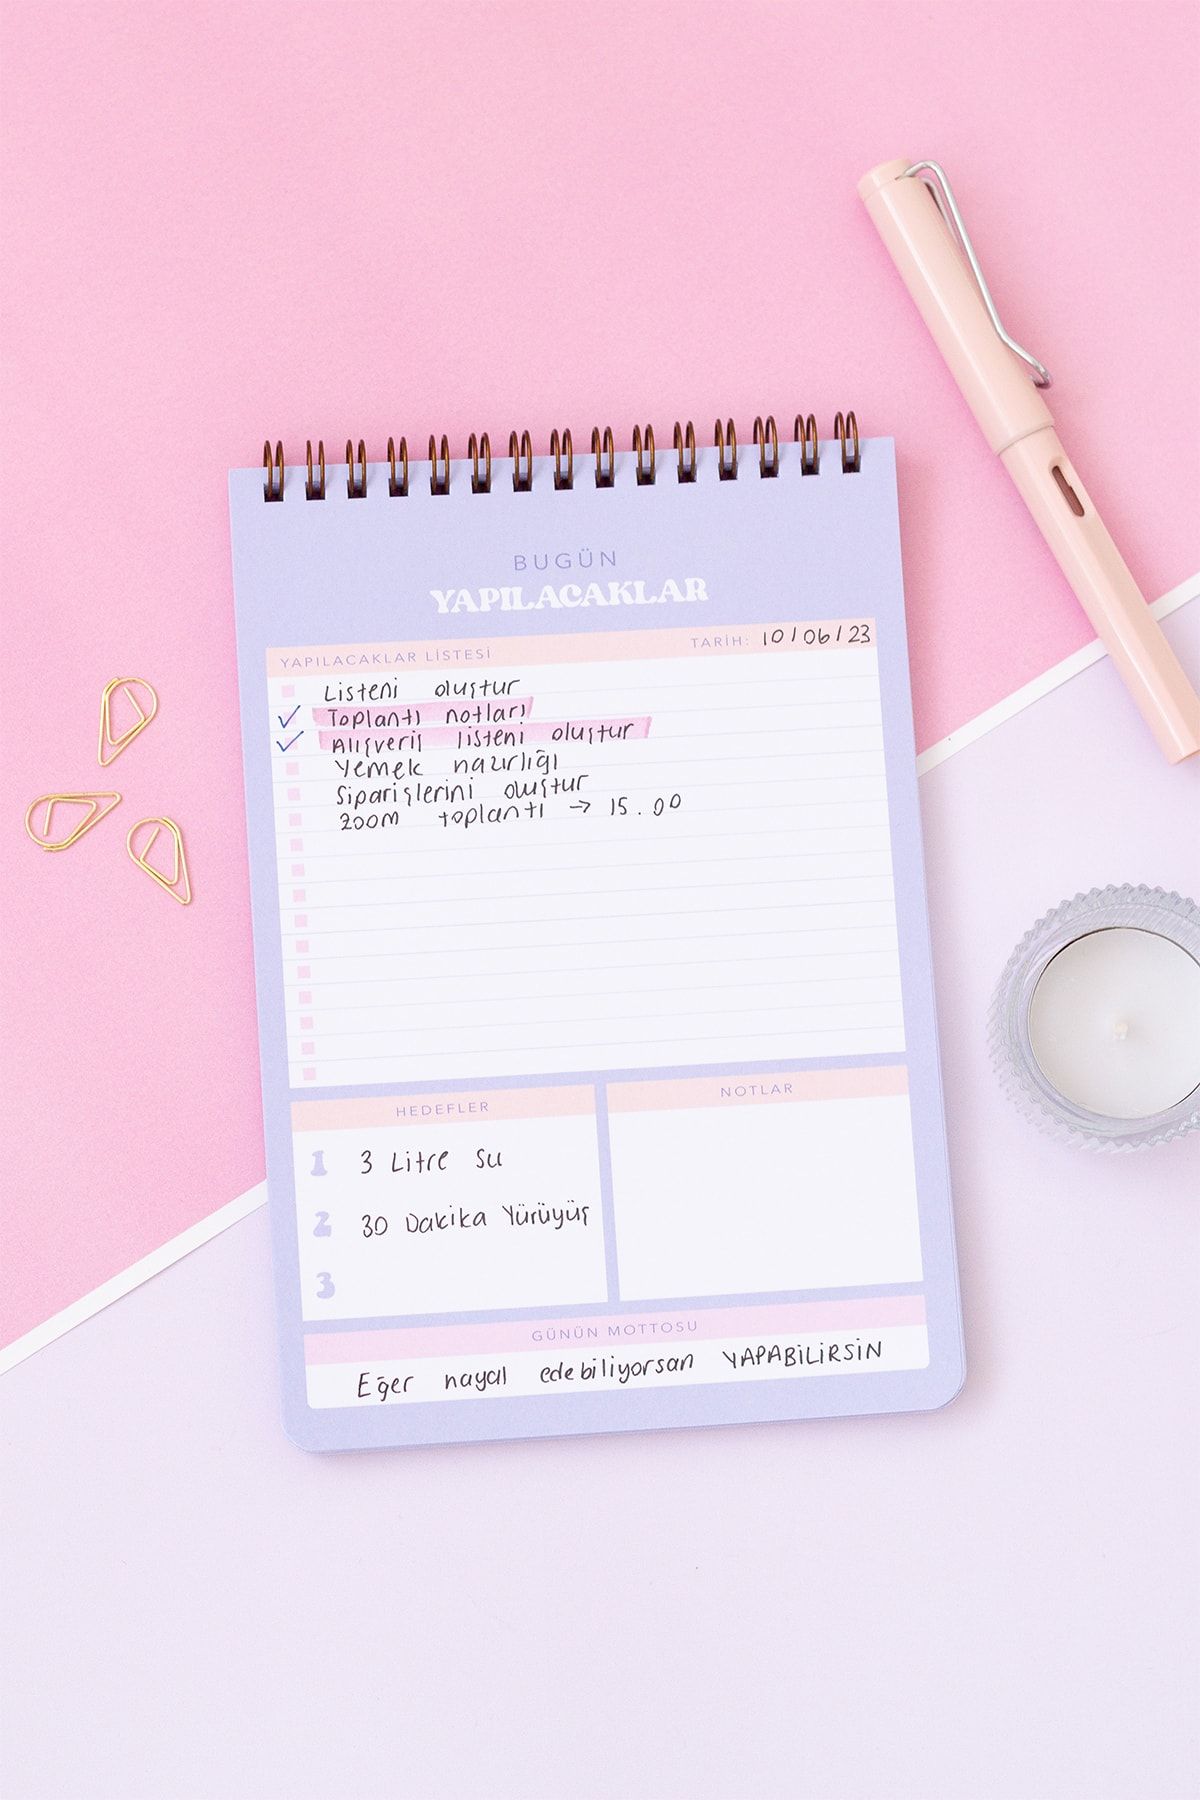 BUGÜN
YAPILACAKLAR
YAPILACAKLAR LİSTESİ TARİH: 10/06/23
Listeni oluştur
Toplantı notları
Alışveriş listeni oluştur
Yemek hazırlığı
Siparişlerini oluştur
zoom toplantı → 15.00
HEDEFLER
1 3 Litre su
2 30 Dakika Yürüyüş
3
NOTLAR
GÜNÜN MOTTOSU
Eğer hayal edebiliyorsan YAPABİLİRSİN